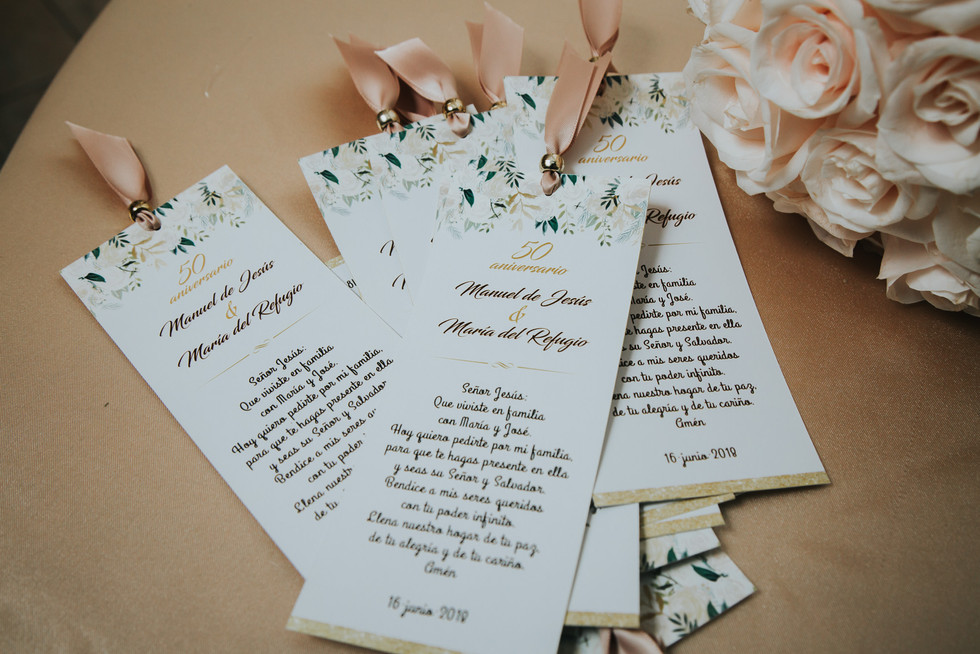 50
aniversario
Manuel de Jesús
&
María del Refugio
Señor Jesús:
Que viviste en familia
con María y José.
Hoy quiero pedirte por mi familia,
para que te hagas presente en ella
y seas su Señor y Salvador
Bendice a mis seres
con tu poder
Llena nuestr
de tu
50
aniversario
Manuel de Jesús
&
María del Refugio
Señor Jesús:
Que viviste en familia
con María y José.
Hoy quiero pedirte por mi familia,
para que te hagas presente en ella
y seas su Señor y Salvador.
Bendice a mis seres queridos
con tu poder infinito.
Llena nuestro hogar de tu paz,
de tu alegría y de tu cariño.
Amén
16 junio 2018
50
aniversario
Jesús
Refugio
Jesús:
en familia
María y José.
pedirte por mi familia,
te hagas presente en ella
su Señor y Salvador
a mis seres queridos
tu poder infinito.
nuestro hogar de tu paz,
de tu alegría y de tu cariño.
Amén
16 junio 2018
Man
Mar